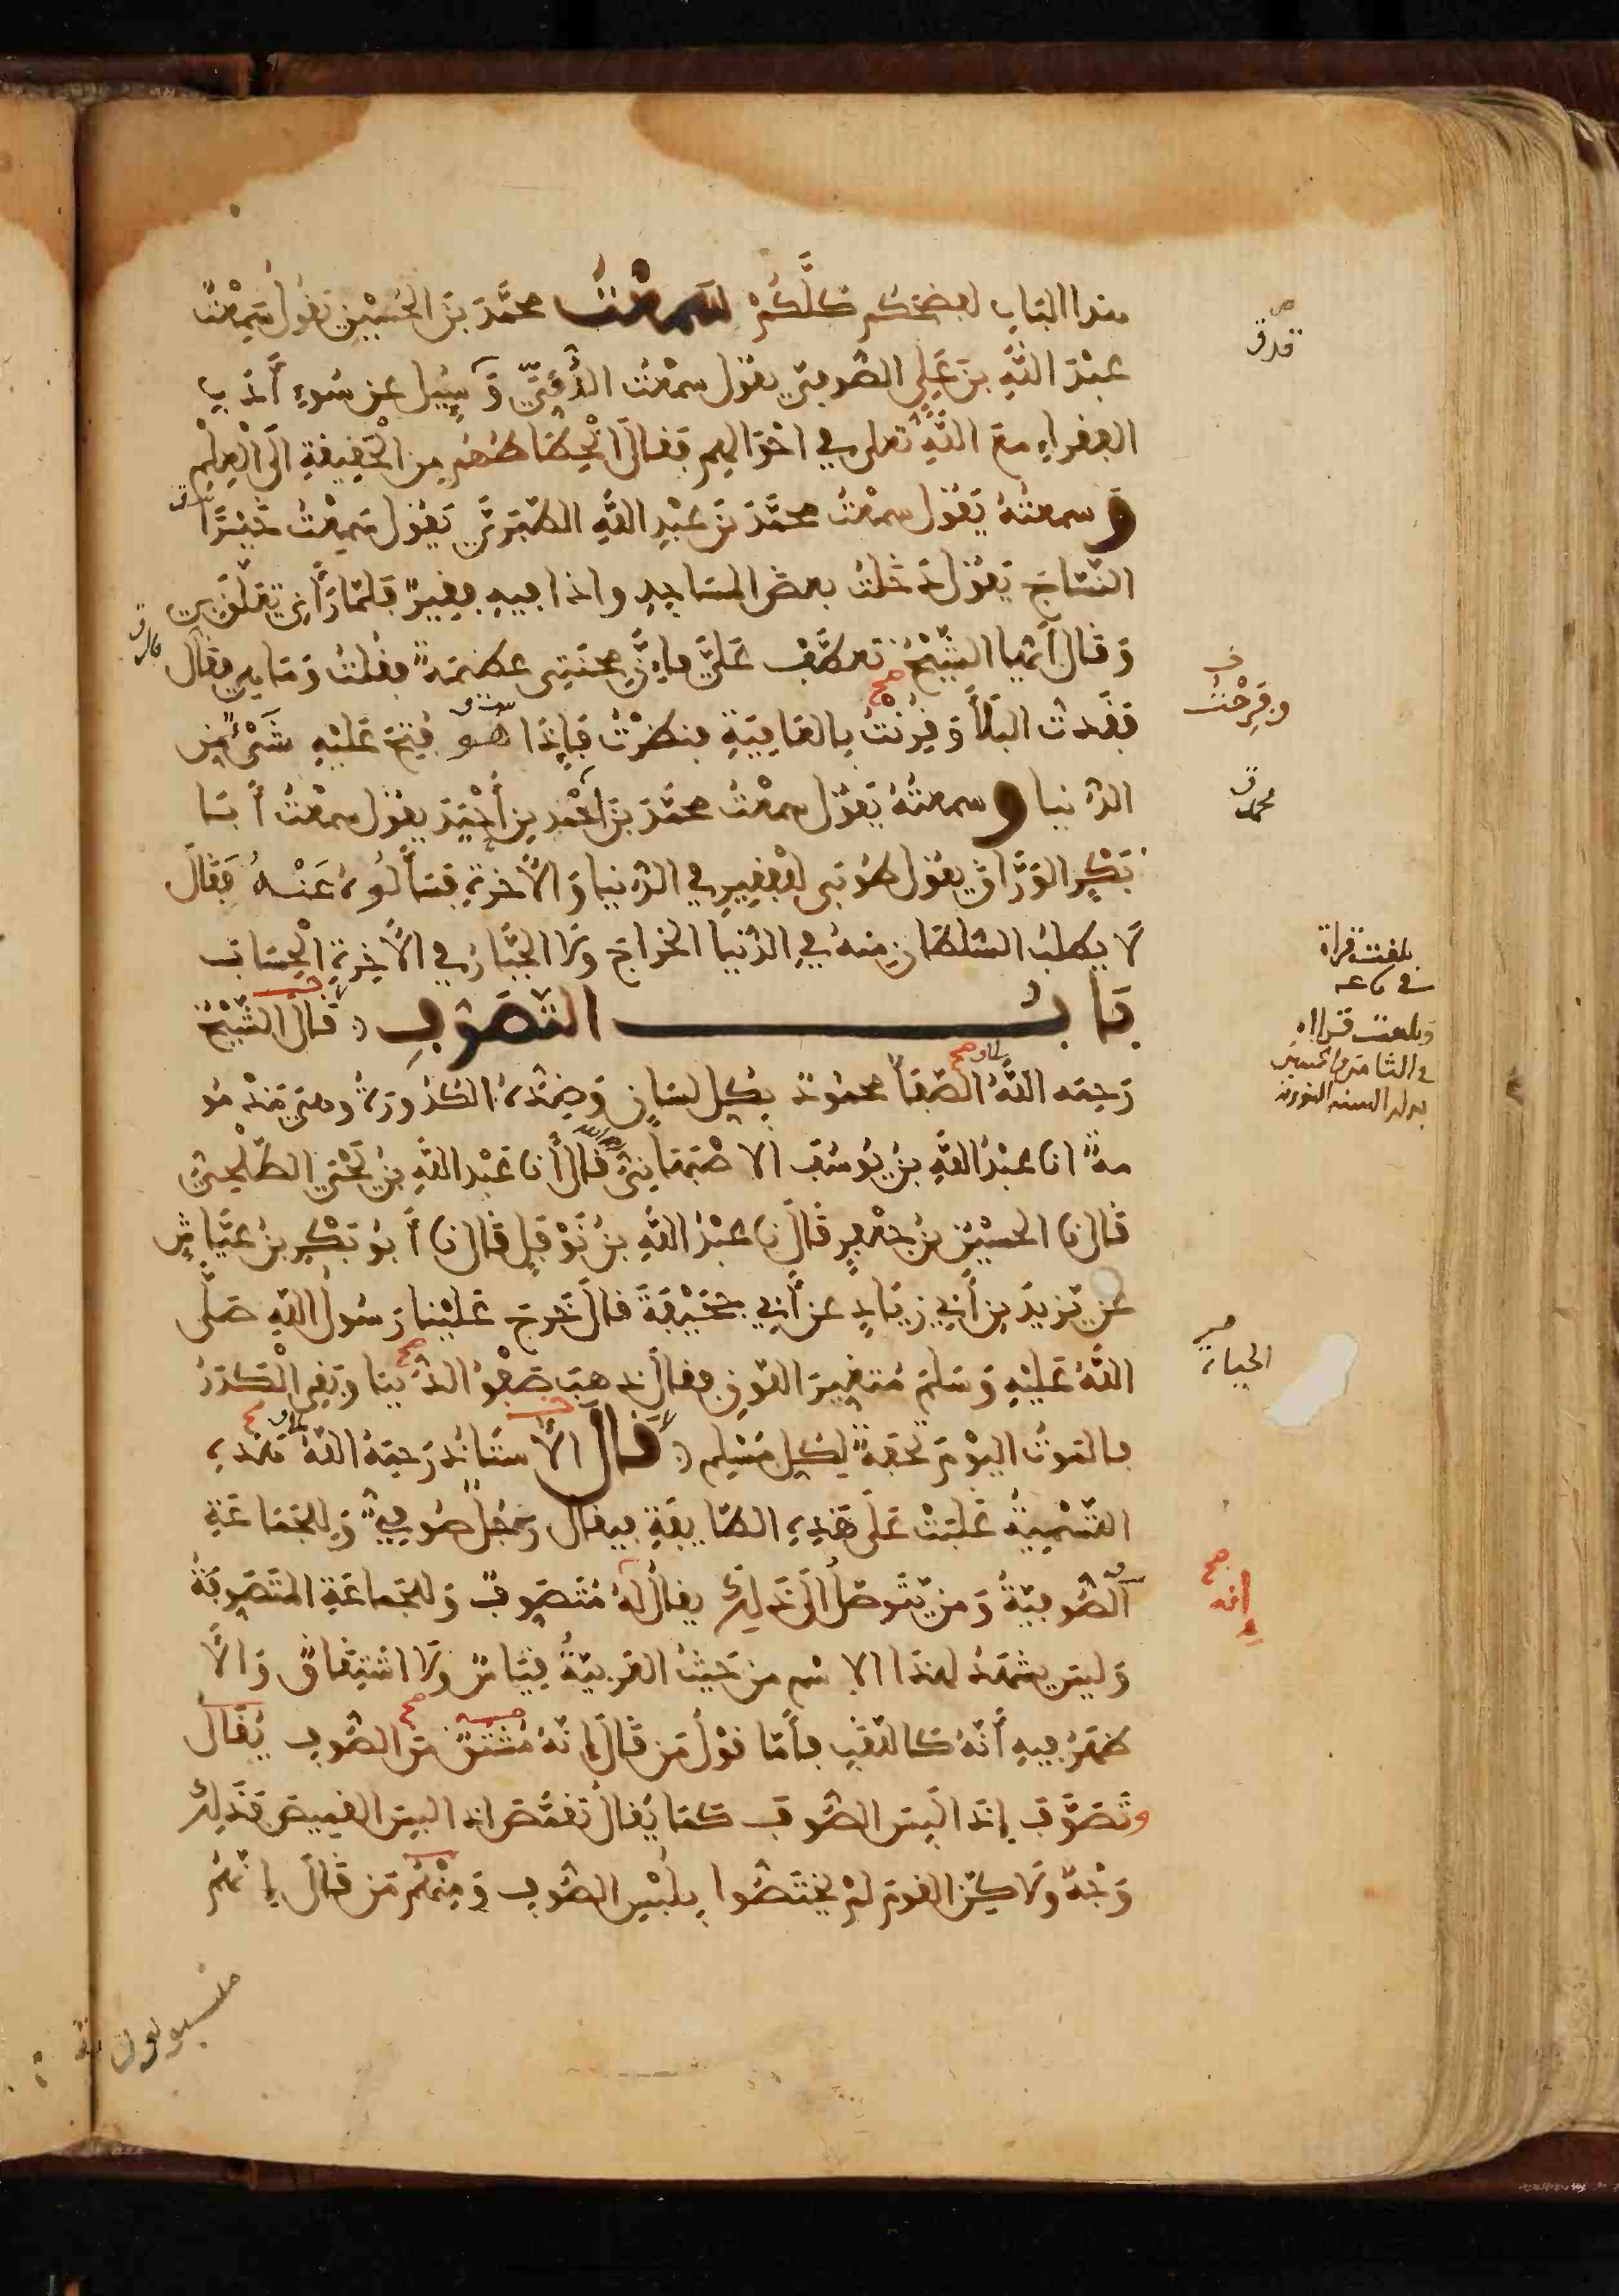 هذا الباب لفضحكم كلكم سَمِعْتُ محمَّدَ بنَ الحُسَيْنِ يَقُول سَمِعْتُ
عَبْدَ اللَّهِ بنَ عَلِي الصُّوفيّ يقول سمعْتُ الدُّقِّيَّ وَسُئِل عن سُوءِ أدب
الفقراءِ معَ اللَّهِ تعلى في أحْوَالهم فقالَ انْحِطَاطُهُم من الْحَقِيقةِ الَى الْعِلْمِ
وسمعته يَقُول سمعْتُ محمَّدَ بنَ عَبْدِ اللهِ الطَّبَرِيَّ يَقُول سَمِعْتُ خَيْرًا
النَّسَّاجَ يَقُول دَخَلتُ بعضَ المسَاجِدِ واذا فيهِ فقِيرٌ فلمَّا رَأَنِي تَعَلَّقَ بي
وَقَال أيُّها الشَّيْخُ تعطَّفْ عَلَيَّ فإنَّ محنَتِي عظيمَةٌ فقُلتُ وَمَا هي فقال
فَقَدتُ البَلَأَ وَقُرِنْتُ بِالعَافِيَةِ فنظرْتُ فإِذَا هُو فُتِحَ عَلَيْهِ شَىْءٌ مِن
الدُّنيا وسمعتُهُ يَقُول سمعْتُ محمَّدَ بنَ أحْمَد بن أحْيَدَ يقول سمعْتُ أبَا
بَكْرٍ الوَرَّاق يقول طُوبَى لِلْفقِيرِ في الدُّنيا وَالأخرةِ فسَألُوهُ عَنْهُ فَقَالَ
لَا يطلبُ السُّلطَانُ مِنهُ في الدُّنيا الخراجَ ولَا الجَبَّارُ في الأخِرةِ الْحِسَابَ
بَابُ التَّصَوُّفِ قَالَ الشَّيْخُ
رَحِمَه اللَّهُ الصَّفَأ محمُودٌ بِكُل لسَانٍ وَضِدُّهُ الكُدُورَةُ وهيَ مَذْمُو
مةٌ انا عبْدُ اللَّهِ بنُ يُوسُفَ الاصْبَهَانِيُّ قَالَ أَنا عَبْدُ اللَّهِ بنُ يَحْيَى الطَّلْحِيُّ
قَال نا الحسَيْنُ بنُ جعْفرٍ قَالَ نا عَبْدُ اللَّهِ بنُ نَوْفَلٍ قال نا أبُو بَكْرٍ بنُ عَيَّاشٍ
عن يَزِيدَ بنِ أَبي زِيَادٍ عن أَبي جُحَيْفَةَ قالَ خَرجَ عَلَيْنا رَسُول اللَّهِ صَلَّى
اللَّهُ عَلَيْهِ وَسَلَّمَ مُتَغيِّرَ اللّوْنِ فقالَ ذهبَ صَفْوُ الدُّنْيَا وبَقِيَ الْكَدَرُ
فالمَوْتُ اليَوْمَ تُحفَةٌ لِكُل مُسْلِم قَالَ الأُسْتَاذ رَحِمَهُ اللَّهُ هَذِهِ
التَّسْمِيةُ غَلَبَتْ عَلَى هَذِهِ الطَّايِفَةِ فيقال رَجُلٌ صُوفيٌّ وَلِلْجَمَاعَةِ
الصُّوفِيَّةُ وَمن يَتَوصَّلُ الَى ذَلِكَ يقالُ لَهُ مُتَصَوفٌ وَللجَماعَةِ المتَصَوفَةُ
وَليسَ يشهَدُ لهذا الاِسْم من حَيثُ العَرَبيَّةُ قِيَاسٌ ولَا اشتِقَاقٌ وَالأ
ظهَرُ فيهِ أنّهُ كَاللَّقَبِ فأَمَّا قوْلُ مَن قَالَ إنّهُ مُشْتَقٌّ مِنَ الصُّوفِ يُقَال
وتَصَوَّفَ إذَا لَبِسَ الصُّوفَ كَمَا يُقال تقمَّصَ اذا لبِسَ القميصَ فَذَلِكَ
وَجْهٌ ولَاكِنَّ القومَ لمْ يختَصُّوا بِلُبْسِ الصُّوفِ وَمِنْهُمْ مَن قَال إنَّهُمْ
وفَرِحْتُ
محمد
بلغت قراة
الحياة
صح
إنه
منسوبون